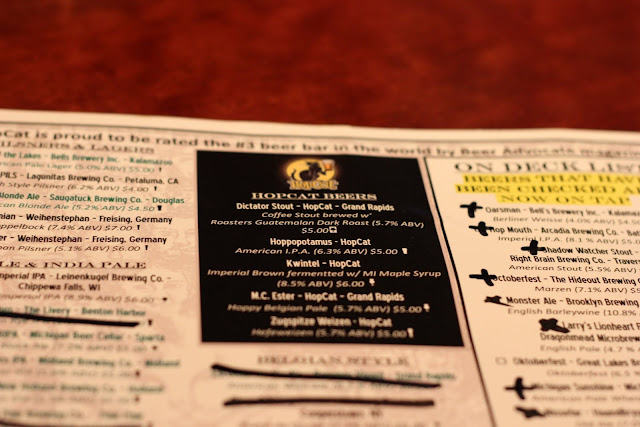 pCat is proud to be rated the #3 beer bar in the world by Beer Advocate
ILSNERS & LAGERS
the Lakes - Bells Brewing Inc. - Kalamazoo
Pale Lager (5.0% ABV) $5.00
PILS - Lagunitas Brewing Co. - Petaluma, CA
Style Pilsner (6.2% ABV) $4.00
londe Ale - Saugatuck Brewing Co. - Douglas
can Blonde Ale (5.2% ABV) $4.50
- Weihenstephan - Freising, Germany
ppelbock (7.4% ABV) $7.00
- Weihenstephan - Freising, Germany
Pilsner (5.1% ABV) $6.00
LE & INDIA PALE
mperial IPA - Leinenkugel Brewing Co. -
Chippewa Falls, WI
mperial IPA (8.9% ABV) $6.00
The Livery - Benton Harbor
- Michigan Beer Cellar - Sparta
HOPCAT
HOPCAT BEERS
Dictator Stout - HopCat - Grand Rapids
Coffee Stout brewed w/
Roasters Guatemalan Dark Roast (5.7% ABV)
$5.00
Hoppopotamus - HopCat
American I.P.A. (6.3% ABV) $5.00
Kwintel - HopCat
Imperial Brown fermentted w/ MI Maple Syrup
(8.5% ABV) $6.00
M.C. Ester - HopCat - Grand Rapids
Hoppy Belgian Pale (5.7% ABV) $5.00
Zugspitze Weizen - HopCat
Hefeweizen (5.7% ABV) $5.00
BELGIAN STYLE
ON DECK LIS
BEERS THAT
BEEN CHECKED A
NOW ON TAP
Oarsman - Bell's Brewery Inc. - Kalama
Berliner Weisse (4.0% ABV)
Hop Mouth - Arcadia Brewing Co. - Bat
Imperial I.P.A. (8.1% ABV) $5.
Shadow Watcher Stout -
Right Brain Brewing Co. - Traver
American Stout (5.5% ABV)
Octoberfest - The Hideout Brewing
Marzen (7.1% ABV) $5
Monster Ale - Brooklyn Brewing
English Barleywine (10.8%
Larry's Lionheart
Dragonmead Microbrew
English Pale (4.7%
Oktoberfest - Great Lakes B
Oktoberfest (6.
Michigan Sunshine -
American Pale Whea